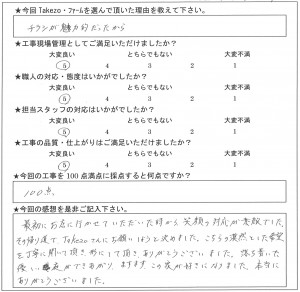 ★今回Takezo・ﾌｧｰﾑを選んで頂いた理由を教えて下さい。
チラシが魅力的だったから
★工事現場管理としてご満足いただけましたか？
大変良い どちらでもない 大変不満
5 4 3 2 1
★職人の対応・態度はいかがでしたか？
大変良い どちらでもない 大変不満
5 4 3 2 1
★担当スタッフの対応はいかがでしたか？
大変良い どちらでもない 大変不満
5 4 3 2 1
★工事の品質・仕上がりはご満足いただけましたか？
大変良い どちらでもない 大変不満
5 4 3 2 1
★今回の工事を100点満点に採点すると何点ですか？
100点
★今回の感想を是非ご記入下さい。
最初にお店に行かせていただいた時から、笑顔の対応が素敵でした。
その帰り道で Takezoさんにお願いしようと決めました。こちらの漠然とした希望
を丁寧に聞いて頂き、形にして頂き、ありがとうございました。落ち着いた
優しい庭ができあがり、ますますこの家が好きになりました。本当に
ありがとうございました。